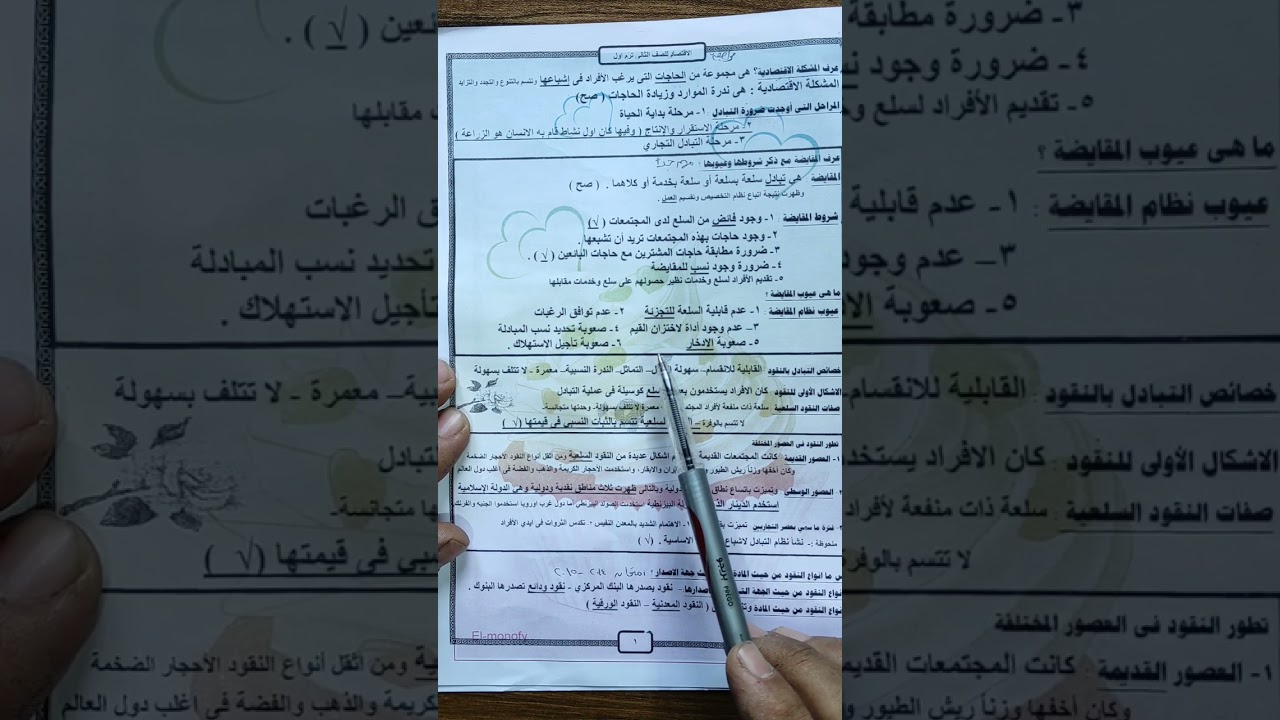 الاقتصاد للصف الثانى ترم اول
عرف المشكلة الاقتصادية؟ هى مجموعة من الحاجات التى يرغب الأفراد فى إشباعها وتتسم بالتنوع والتجدد والتزايد
المشكلة الاقتصادية : هى ندرة الموارد وزيادة الحاجات ( صح )
المراحل التى أوجدت ضرورة التبادل ١- مرحلة بداية الحياة
٢- مرحلة الاستقرار والإنتاج ( وفيها كان اول نشاط قام به الانسان هو الزراعة )
٣- مرحلة التبادل التجاري
عرف المقايضة مع ذكر شروطها وعيوبها :
المقايضة هي تبادل سلعة بسلعة أو سلعة بخدمة أو كلاهما . ( صح )
وظهرت نتيجة اتباع نظام التخصيص وتقسيم العمل .
شروط المقايضة : ١- وجود فائض من السلع لدى المجتمعات (√)
٢- وجود حاجات بهذه المجتمعات تريد أن تشبعها .
٣- ضرورة مطابقة حاجات المشترين مع حاجات البائعين ( √ ) .
٤- ضرورة وجود نسب للمقايضة
٥- تقديم الأفراد لسلع وخدمات نظير حصولهم على سلع وخدمات مقابلها
ما هى عيوب المقايضة ؟
عيوب نظام المقايضة : ١- عدم قابلية السلعة للتجزئة ٢- عدم توافق الرغبات
٣– عدم وجود أداة لاختزان القيم ٤- صعوبة تحديد نسب المبادلة
٥- صعوبة الادخار ٦- صعوبة تأجيل الاستهلاك .
خصائص التبادل بالنقود : القابلية للانقسام– سهولة – التماثل– الندرة النسبية– معمرة - لا تتلف بسهولة
الاشكال الأولى للنقود : كان الافراد يستخدمون سلع كوسيلة فى عملية التبادل
صفات النقود السلعية : سلعة ذات منفعة لأفراد معمرة - لا تتلف بسهولة- وحدتها متجانسة-
لا تتسم بالوفرة – السلعية تتسم بالثبات النسبي في قيمتها ( √ )
تطور النقود فى العصور المختلفة
١- العصور القديمة : كانت المجتمعات القديمة اشكال عديدة من النقود السلعية ومن اثقل أنواع النقود الاحجار الضخمة
وكان أخفها وزنا ريش الطيور والابقار، واستخدمت الأحجار الكريمة والذهب والفضة فى اغلب دول العالم
العصور الوسطى : وتميزت باتساع نطاق وبالتالى ظهرت ثلاث مناطق نقدية ودولية وهي الدولة الاسلامية
استخدم الدينار البيزنطية استخدمت أما دول غرب اوروبا استخدموا الجنيه
فترة ما سمي بعصر التجاريين : تميزت ١- الاهتمام الشديد بالمعدن النفيس ٢- تكدس الثروات فى ايدى الأفراد
ملحوظة :- نشأ نظام التبادل لاشباع الاساسية . (√ )
ما انواع النقود من حيث المادة جهة الاصدار؟
انواع النقود من حيث الجهة نقود يصدرها البنك المركزي - نقود ودائع تصدرها البنوك .
انواع النقود من حيث المادة ( النقود المعدنية – النقود الورقية )
١
El-monofy